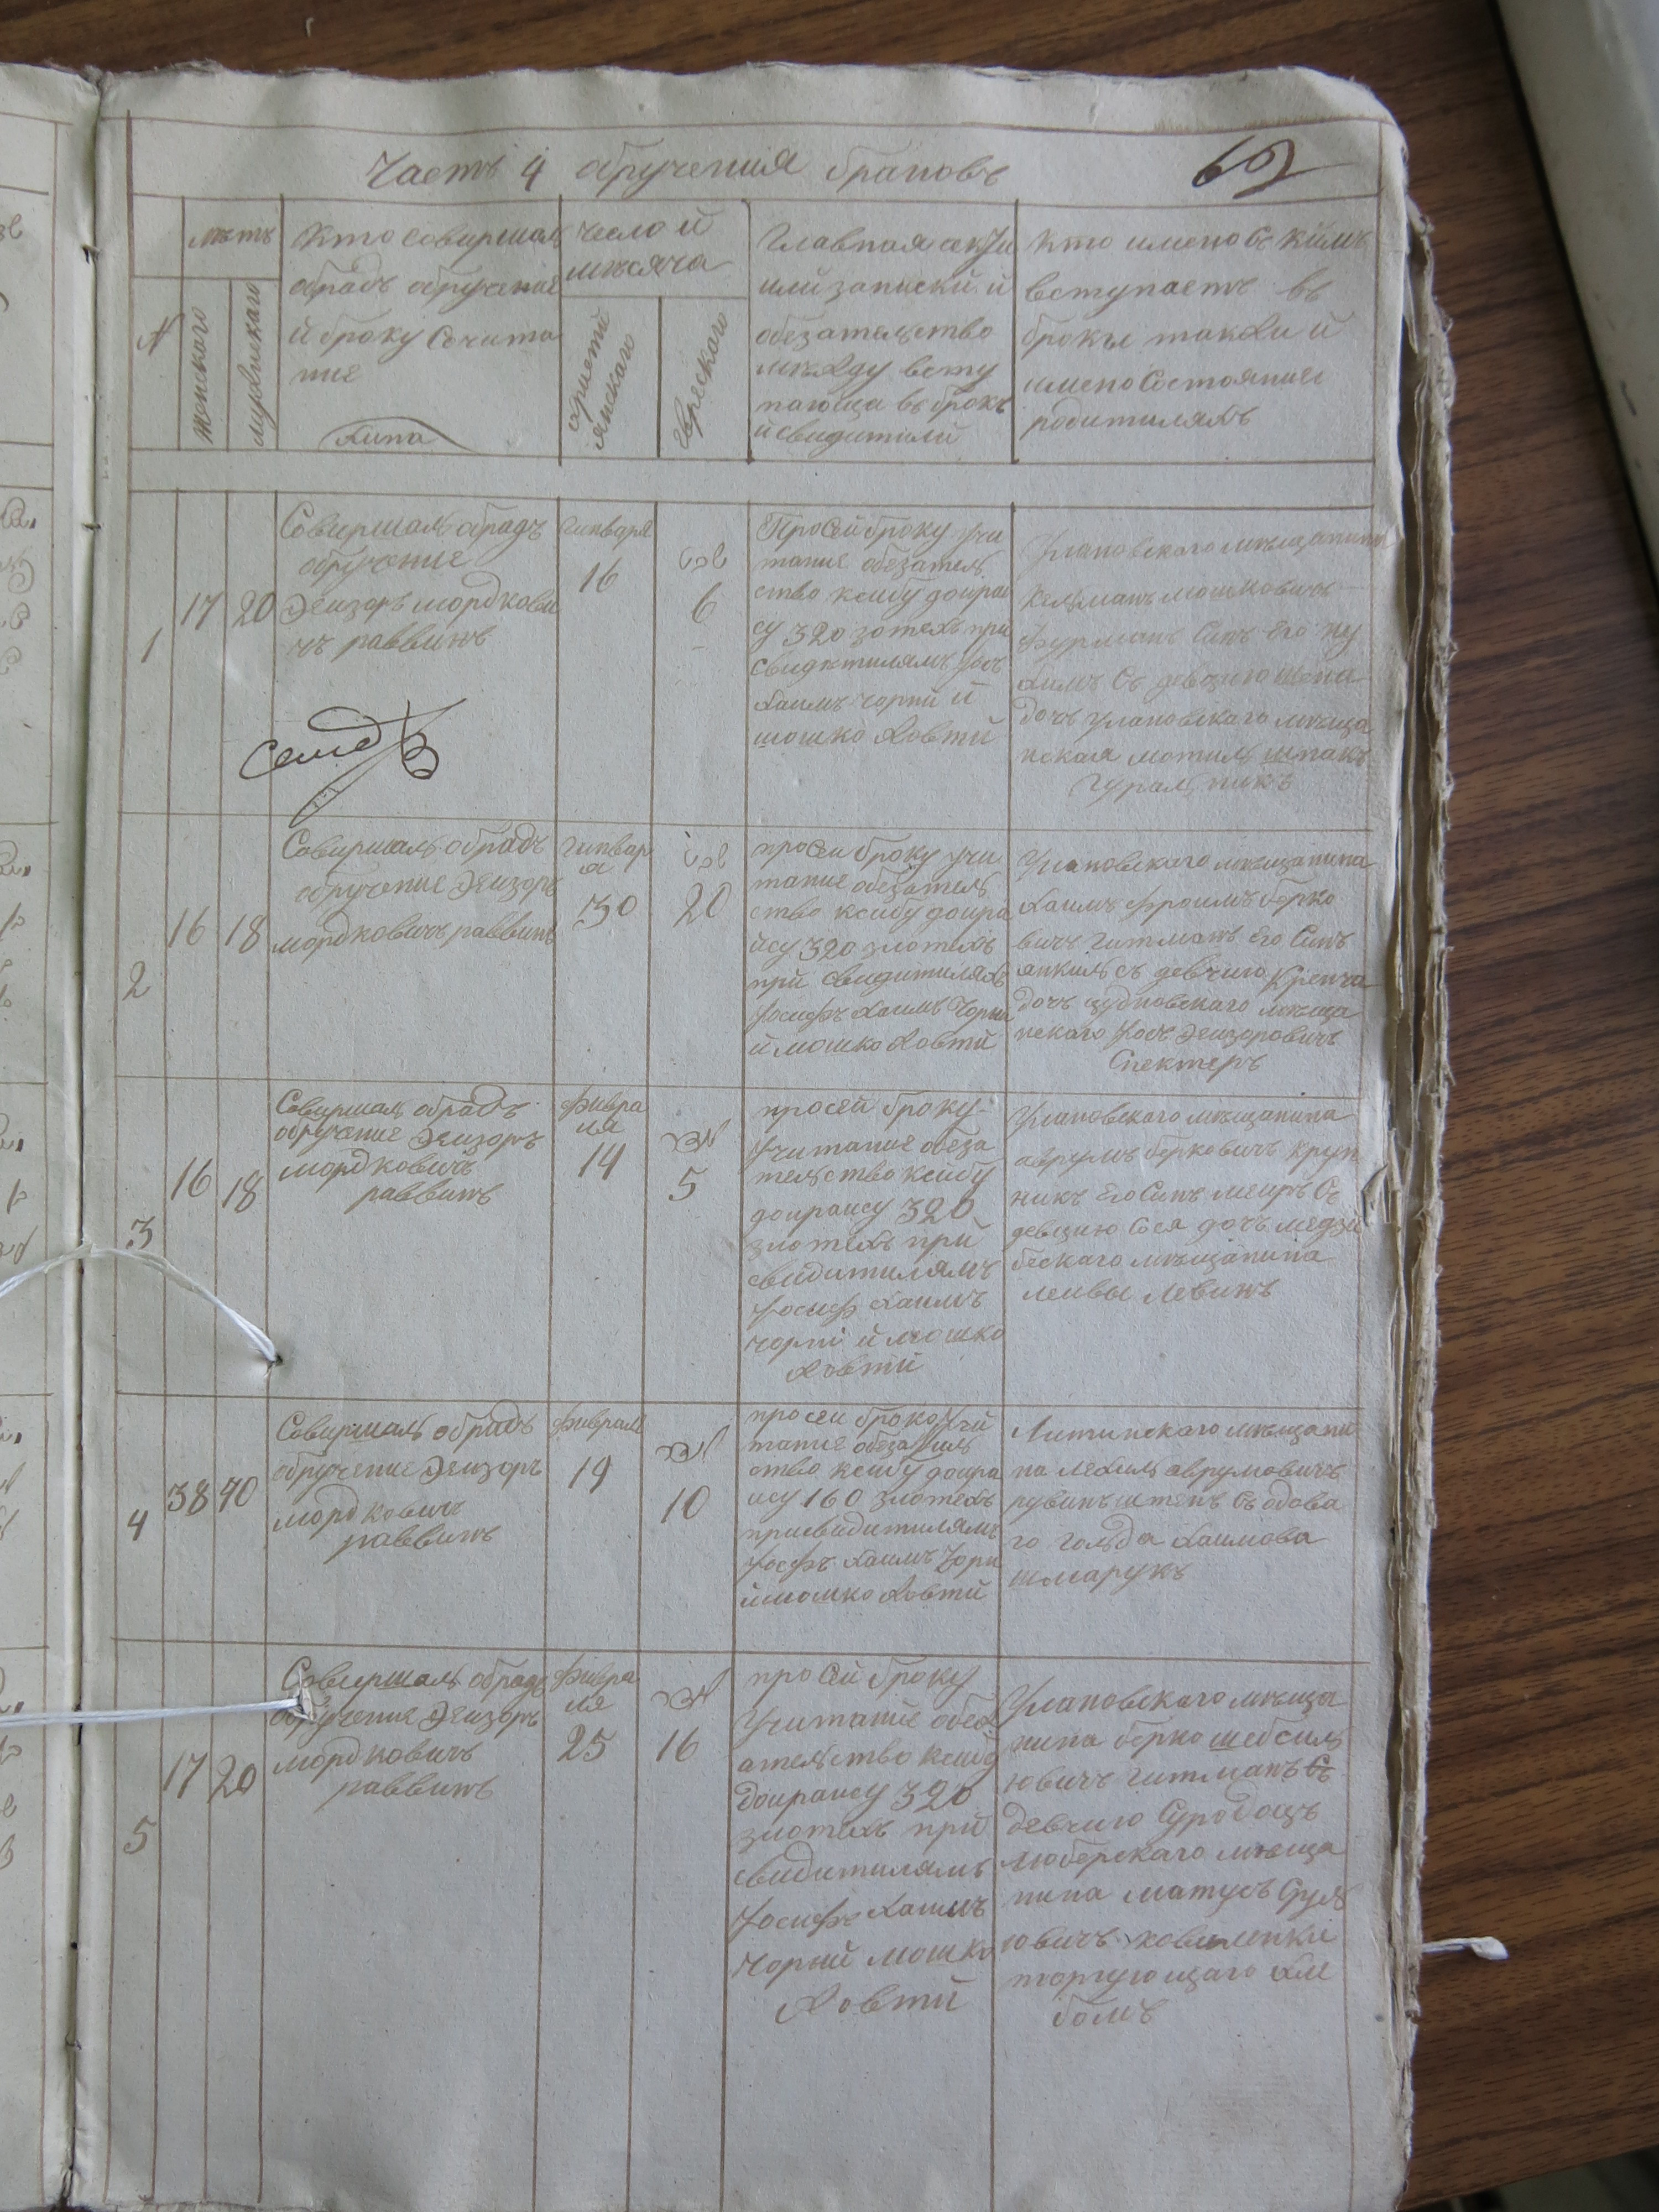 Часть 4 абручения браковъ
69
№
лѣтъ
женского
мужискаго
Кто совиршаль
абрадъ абручение
й броку Сочита
ние
Хипа
число й
мѣсяча
христи
янского
Еврескаго
Главная
или записки й
обезательство
между всту
пающа въ брокъ
й свидители
кто имено съ кимъ
вступаетъ въ
брокъ такжи й
имено Состояние
родителяхъ
1
17
20
Совиршаль абрадъ
обручение
Лейзоръ мордкови
чъ раввинъ
Января
16
שבט
6
Просей броку учи
тание обезатель
ство ксибу доира
су 320 зотехъ при
свидктилямъ Йос
Хаимъ Чорни й
мошко Ховтй
Улановскаго мѣщанина
Кельманъ мошковичъ
фурманъ Синъ Его ну
химъ Съ девцию Шена
дочъ улановскаго мѣща
нская мотиль шпакъ
Гуральникъ
2
16
18
Совиршаль обрадъ
обручение Лейзоръ
мордковичъ раввинъ
Гинвар
я
30
שבט
20
просеи броку учи
тание обезатель
ство ксибу доира
йсу 320 злотехъ
при свидителяхъ
Йосифъ Хаимъ Чорни
й мошко Ховтй
Улановскаго мѣщанина
Хаимъ Фроимъ берко
вичъ Гитманъ Его Синъ
янкиль съ девчию Крейча
дочъ чудновскаго мѣща
нскаго Йосъ Лейзоровичъ
Спекторъ
3
16
18
Совиршаль обрадъ
обручение Лейзоръ
мордковичъ
раввинъ
Фивра
ля
14
אדר
5
просей броку
Учитание обеза
тельство ксибу
доираису 320
злотехъ при
свидителямъ
Йосиф Хаимъ
чорни й мошко
Ховтй
Улановскаго мѣщанина
аврумъ берковичъ круп
никъ Его Синъ меиръ Съ
девцию Сося дочъ медзи
бескаго мѣщанина
леивы левинъ
4
38
40
Совиршаль обрадъ
обручение Лейзоръ
мордковичъ
раввинъ
Фивраль
19
אדר
10
просеи броко Учй
тание обезатиль
ство ксибу доира
ису 160 злотехъ
присвидителямъ
Йосфъ Хаимъ Чорни
й мошко Ховтй
Литинскаго мѣщани
на лехиль аврумовичъ
рубинъштенъ Съ одова
го гольда Хаимова
шмарукъ
5
17
20
Совиршаль обрадъ
обручение Лейзоръ
мордковичъ
раввинъ
Фивра
ля
25
אדר
16
просей броку
Учитание обез
ательство ксибу
доираису 320
злотехъ при
свидителямъ
Йосифъ Хаимъ
Чорний мошко
Ховтй
Улановскаго мѣща
нина берко шебсиль
ювичъ гитманъ Съ
девчию Суро доцъ
люберскаго мѣща
нина матусъ Сруль
ювичъ
торгующаго хле
бомъ